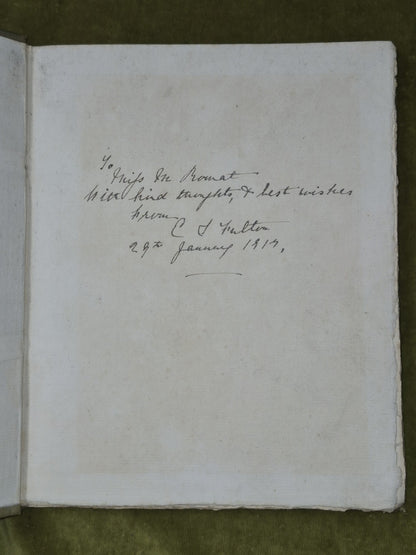 To
Miss
With kind thoughts, & best wishes
From
C Fulton
29th January 191